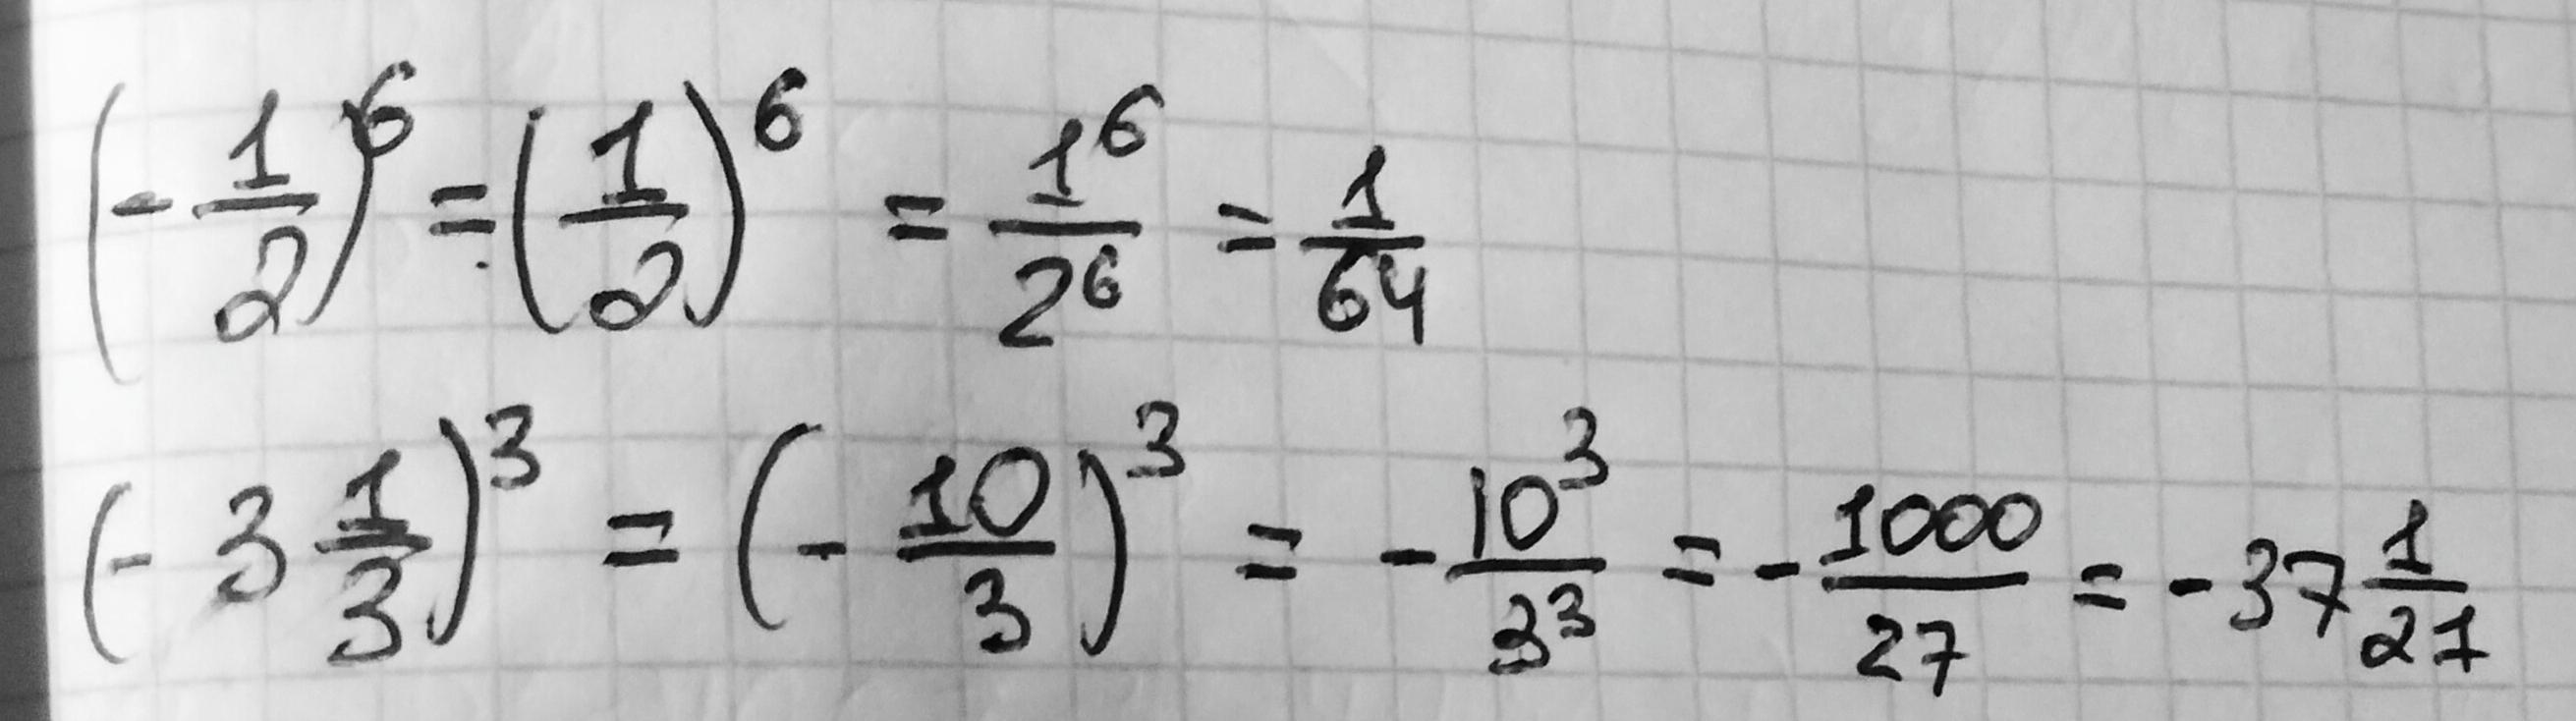 (-1/2)^6 = (1/2)^6 = 1^6/2^6 = 1/64
(-3 1/3)^3 = (-10/3)^3 = -10^3/3^3 = -1000/27 = -37 1/27